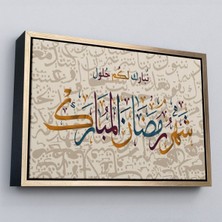 نبارك لكم حلول
شهر رمضان المبارك